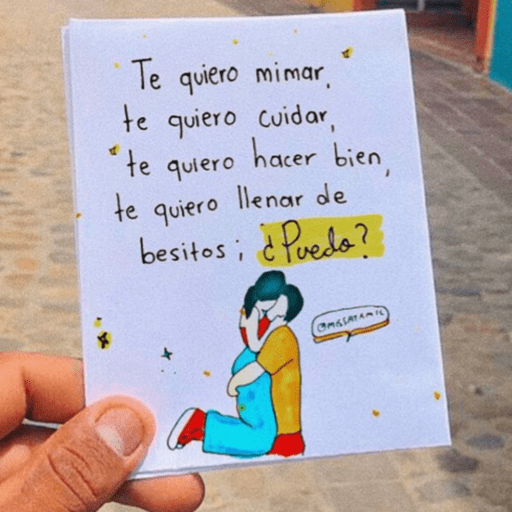 Te quiero mimar,
te quiero cuidar,
te quiero hacer bien,
te quiero llenar de
besitos; ¿Puedo?